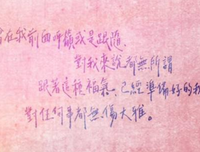 在我前面呼嘯或是跳躍
對我來說都無所謂
跟著這種福氣。已經準備好的我
對任何事都無傷大雅。